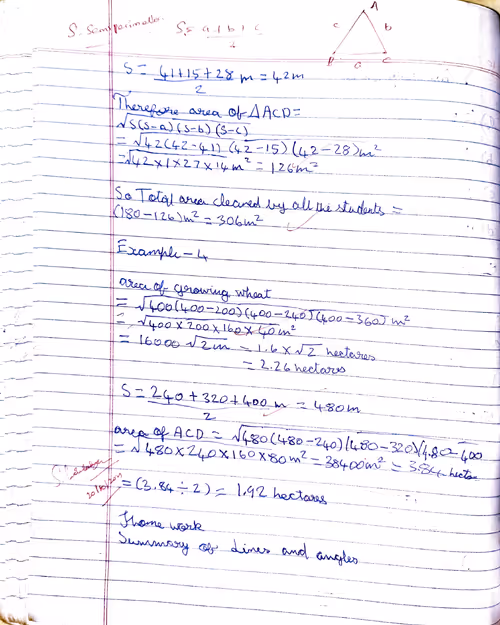 S - Semiperimeter S = a+b+c/2
A
c b
B a C
S = 41+15+28/2 m = 42m
Therefore area of ΔACD =
√S(S-a)(S-b)(S-c)
= √42(42-41)(42-15)(42-28)m²
= √42×1×27×14m² = 126m²
So Total area cleaned by all the students =
(180-126)m² = 306m²
Example - 4
area of growing wheat
= √400(400-200)(400-240)(400-360) m²
= √400×200×160×40m²
= 16000 √2m = 1.6 × √2 hectares
= 2.26 hectares
S = 240+320+400/2 m = 480m
area of ACD = √480(480-240)(480-320)(480-400
= √480×240×160×80m² = 38400m² = 3.84 hectar
= (3.84÷2) = 1.92 hectares
Home work
Summary of Lines and angles